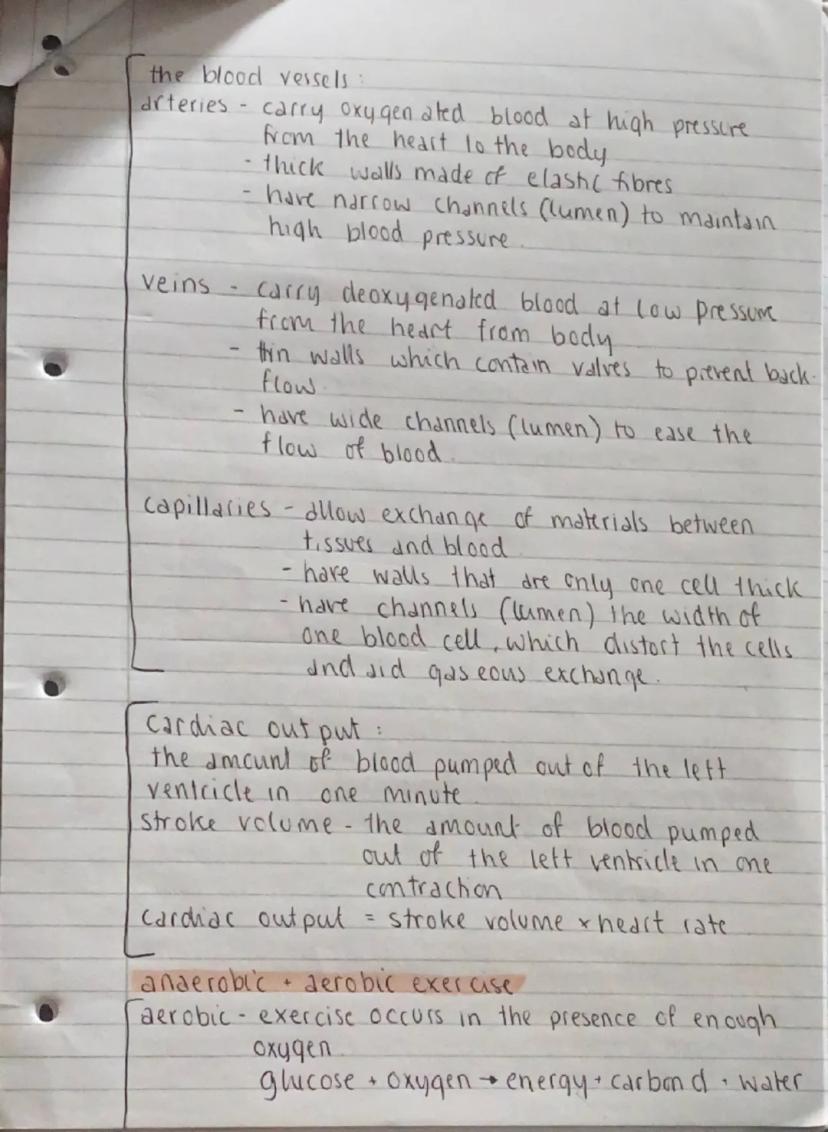 the blood vessels:
arteries - carry oxygenated blood at high pressure
from the heart to the body
- thick walls made of elastic fibres
- have narrow channels (lumen) to maintain
high blood pressure.
veins - carry deoxygenated blood at low pressure
from the heart from body
- thin walls which contain valves to prevent back
flow.
- have wide channels (lumen) to ease the
flow of blood.
capillaries - allow exchange of materials between
tissues and blood
- have walls that are only one cell thick
- have channels (lumen) the width of
one blood cell, which distort the cells
and aid gaseous exchange.
cardiac output :
the amount of blood pumped out of the left
ventricle in one minute.
stroke volume - the amount of blood pumped
out of the left ventricle in one
contraction
cardiac output = stroke volume x heart rate
anaerobic + aerobic exercise
aerobic - exercise occurs in the presence of enough
oxygen.
glucose + oxygen → energy + carbon d + water